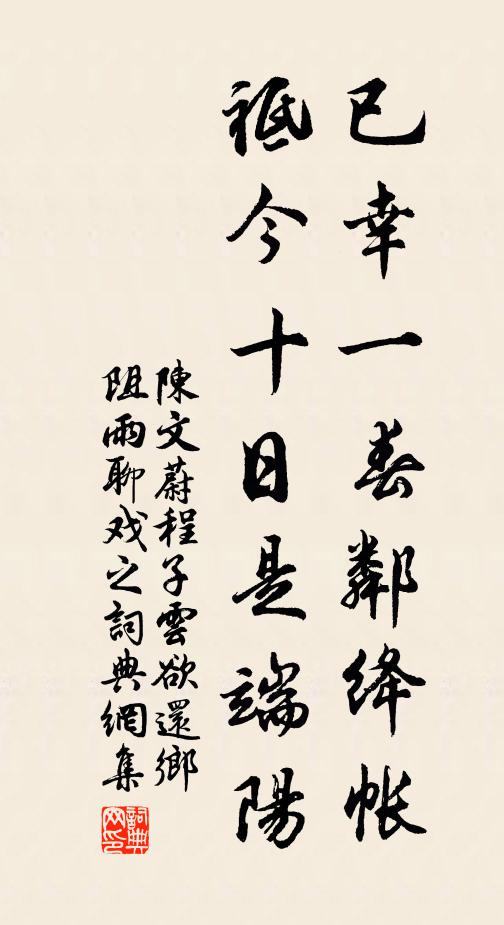 已幸一春鄰絳帳
祗今十日是端陽
陳文蔚程子雲欲還鄉
阻雨聊戏之詞典網集
詞典网印